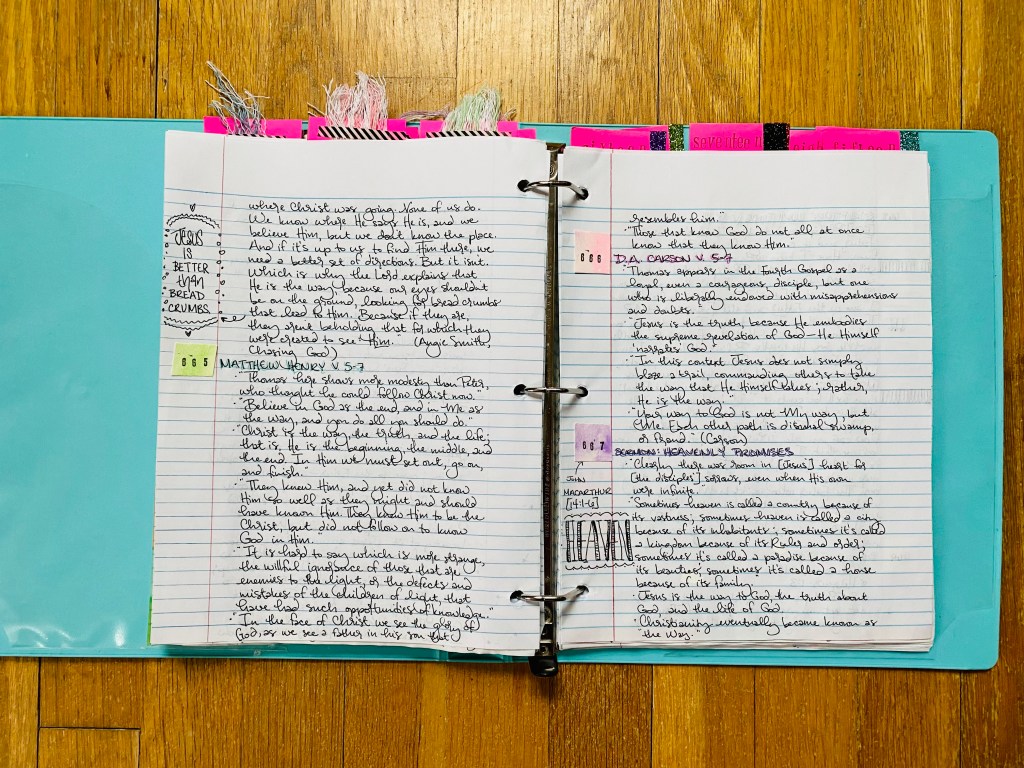 seventee
where Christ was going. None of us do.
We know where He says He is, and we
believe Him, but we don't know the place.
And if it's up to us to find Him there, we
need a better set of directions. But it isn't.
Which is why the Lord explains that
He is the way, because our eyes shouldn't
be on the ground, looking for bread crumbs
that lead to Him. Because if they are,
they aren't beholding that for which they
were created to see: Him." (Angie Smith,
Chasing God)
JESUS
IS
BETTER
than
BREAD
CRUMBS.
665
MATTHEW HENRY V. 5-7
·"Thomas here shows more modesty than Peter,
who thought he could follow Christ now."
·"Believe in God as the end, and in Me as
the way, and you do all you should do."
·"Christ is the way, the truth, and the life;
that is, He is the beginning, the middle, and
the end. In Him we must set out, go on,
and finish."
·"They knew Him, and yet did not know
Him so well as they might and should
have known Him. They knew Him to be the
Christ, but did not follow on to know
God in Him."
·"It is hard to say which is more strange,
the willful ignorance of those that are
enemies to the light, or the defects and
mistakes of the children of light, that
have had such opportunities of knowledge."
·"In the face of Christ we see the glory of
God, as we see a father in his son that
resembles him."
·"Those that know God do not all at once
know that they know Him."
666
D.A. CARSON V. 5-7
·"Thomas appears in the fourth Gospel as a
loyal, even a courageous, disciple, but one
who is liberally endowed with misapprehensions
and doubts."
·"Jesus is the truth, because He embodies
the supreme revelation of God—He Himself
'narrates' God."
·"In this context Jesus does not simply
blaze a trail, commanding others to take
the way that He Himself takes; rather,
He is the way."
·"Your way to God is not My way, but
Me. Each other path is dismal swamp,
or fraud." (Carson)
667
SERMON: HEAVENLY PROMISES
JOHN
MACARTHUR
[14:1-6]
·Clearly there was room in [Jesus'] heart for
[the disciples'] sorrows, even when His own
were infinite.
HEAVEN
·Sometimes heaven is called a country because of
its vastness; sometimes heaven is called a city
because of its inhabitants; sometimes it's called
a kingdom because of its Ruler and order;
sometimes it's called a paradise because of
its beauties; sometimes it's called a house
because of its family.
·Jesus is the way to God, the truth about
God, and the life of God.
·Christianity eventually became known as
"the Way."